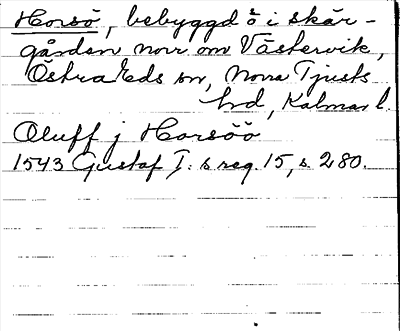 Horsö, bebyggd ö i skär-
gården norr om Västervik,
Östra Eds sn, Norra Tjusts
hd, Kalmar l.
Oluff j Horsöö
1543 Gustaf I:s reg. 15, s. 280.